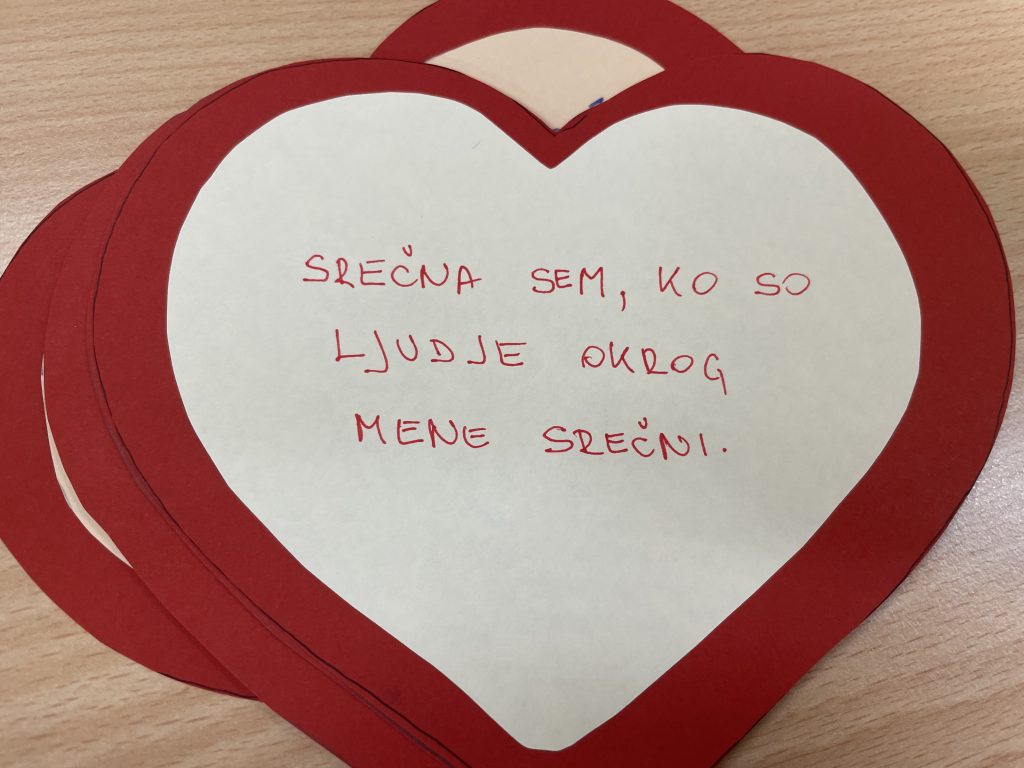 SREČNA SEM, KO SO
LJUDJE OKROG
MENE SREČNI.